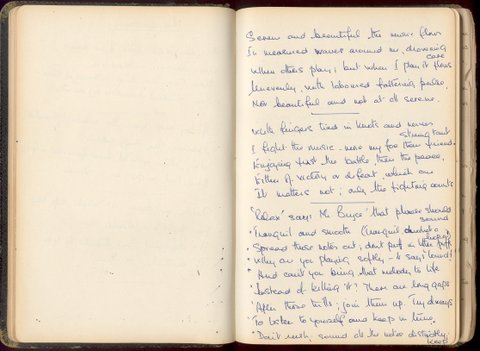 Serene and beautiful the music flows
In measured waves around me, drowning
care
When others play; but when I play it flows
Unevenly, with laboured faltering pulse.
Not beautiful and not at all serene.
With fingers tied in knots and nerves
strung taut
I fight the music - more my foe than friend.
Enjoying just the battle, then the peace,
Either of victory or defeat, which one
It matters not; only the fighting counts.
'Relax' says Mr Bryce 'that phrase should
sound
Tranquil and smooth
Spread those notes out; don't put in
Why are you playing softly - it says 'loud'!
And can't you bring that melody to life
Instead of killing it? There are long gaps
After those trills; join them up. Try always
To listen to yourself and keep in time,
Don't rush, sound all the notes distinctly,
keep